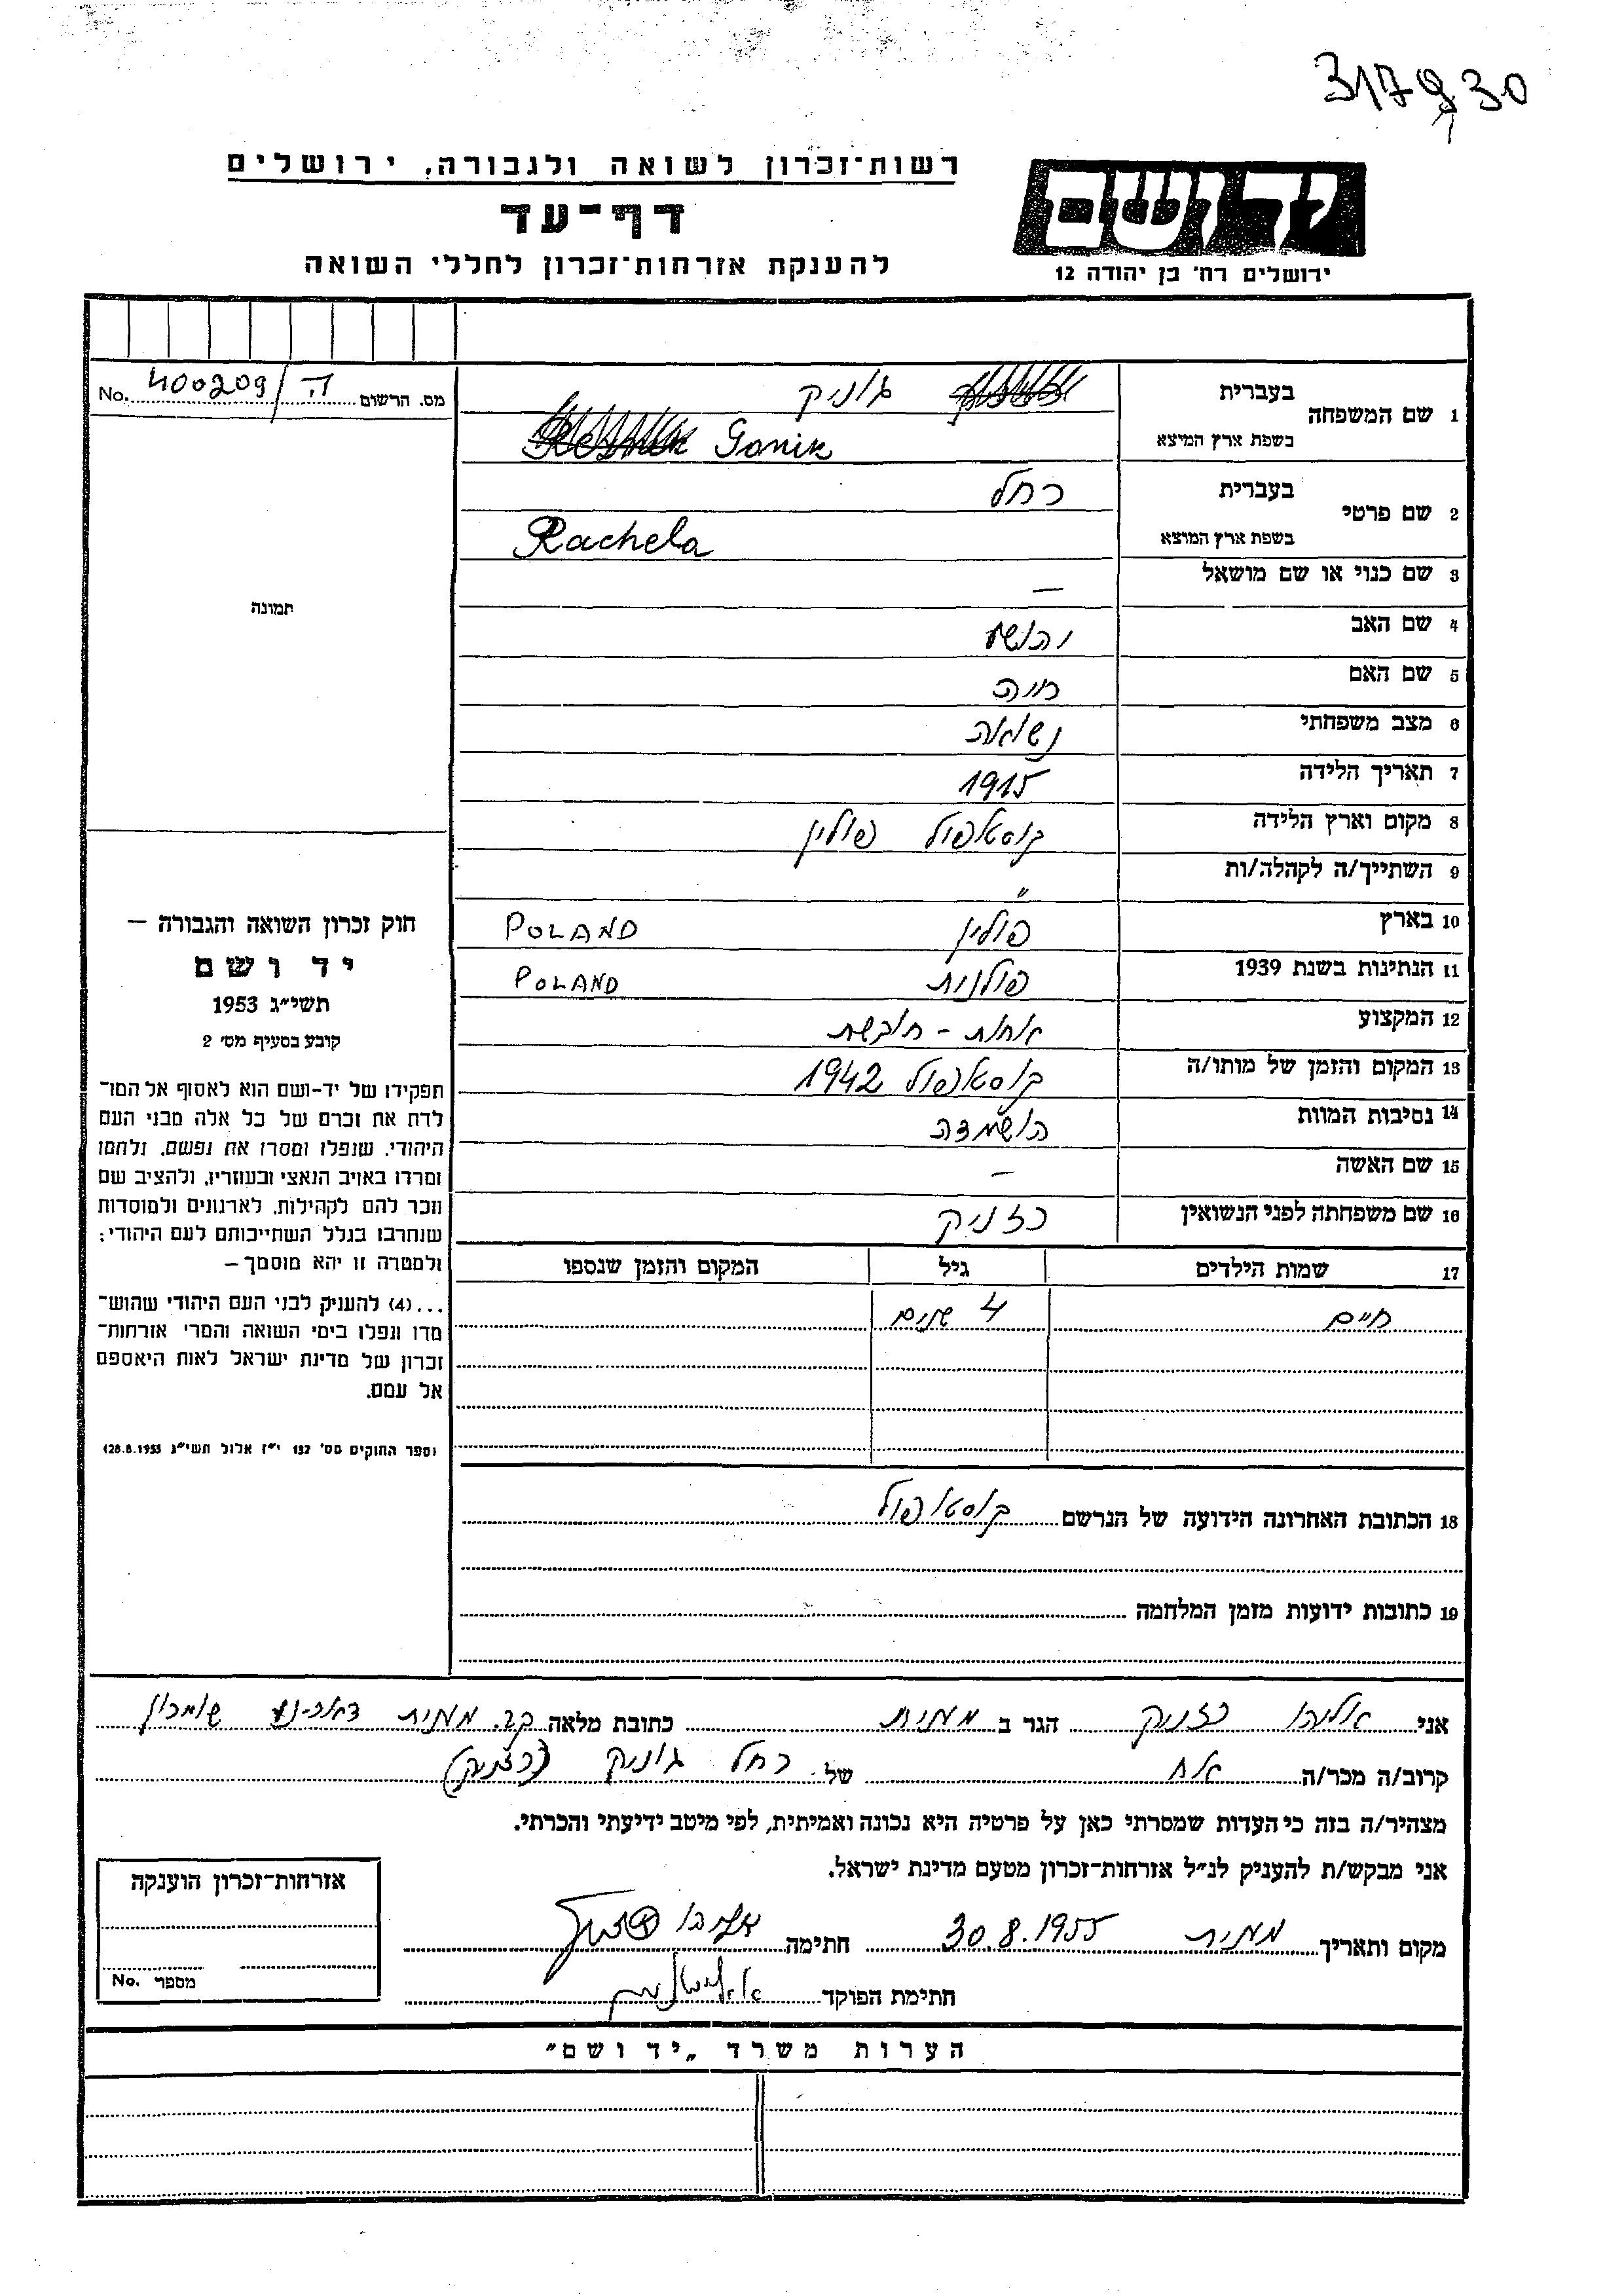 317930
רשות־זכרון לשואה ולגבורה, ירושלים
דף־עד
להענקת אזרחות־זכרון לחללי השואה
יד ושם
ירושלים רח׳ בן יהודה 12
מס. הרשום ה/400209 No.
1 שם המשפחה
בעברית גוניק
בשפת ארץ המיצא Gonik
2 שם פרטי
בעברית רחל
בשפת ארץ המוצא Rachela
3 שם כנוי או שם מושאל –
4 שם האב יהושע
5 שם האם חיה
6 מצב משפחתי נשואה
7 תאריך הלידה 1915
8 מקום וארץ הלידה קוסטופול פולין
9 השתייך/ה לקהלה/ות "
10 בארץ פולין POLAND
11 הנתינות בשנת 1939 פולנית POLAND
12 המקצוע אחות - חובשת
13 המקום והזמן של מותו/ה קוסטופול 1942
14 נסיבות המוות הושמדה
15 שם האשה –
16 שם משפחתה לפני הנשואין רזניק
17 שמות הילדים גיל המקום והזמן שנספו
חיים 4 שנים
18 הכתובת האחרונה הידועה של הנרשם קוסטופול
19 כתובות ידועות מזמן המלחמה
תמונה
חוק זכרון השואה והגבורה –
יד ושם
תשי״ג 1953
קובע בסעיף מס׳ 2
תפקידו של יד-ושם הוא לאסוף אל המו־
לדת את זכרם של כל אלה מבני העם
היהודי, שנפלו ומסרו את נפשם, נלחמו
ומרדו באויב הנאצי ובעוזריו, ולהציב שם
וזכר להם לקהילות, לארגונים ולמוסדות
שנחרבו בגלל השתייכותם לעם היהודי;
ולמטרה זו יהא מוסמך –
...(4) להעניק לבני העם היהודי שהוש־
מדו ונפלו בימי השואה והמרי אזרחות־
זכרון של מדינת ישראל לאות היאספם
אל עמם.
(ספר החוקים מס׳ 132 י״ז אלול תשי״ג 28.8.1953)
אני אליהו רזניק הגר ב ממית כתובת מלאה קב. ממית דאר-נע שומרון
קרוב/ה מכר/ה אח של רחל גוניק (רזניק)
מצהיר/ה בזה כי העדות שמסרתי כאן על פרטיה היא נכונה ואמיתית, לפי מיטב ידיעתי והכרתי.
אני מבקש/ת להעניק לנ״ל אזרחות-זכרון מטעם מדינת ישראל.
מקום ותאריך ממית 30.8.1955 חתימה
חתימת הפוקד
אזרחות־זכרון הוענקה
מספר No.
הערות משרד „יד ושם"